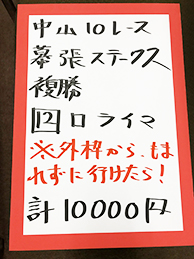 中山10レース
幕張ステークス
複勝
囗ロライマ
※外枠から、もま
れずに行けたら!
計10000円